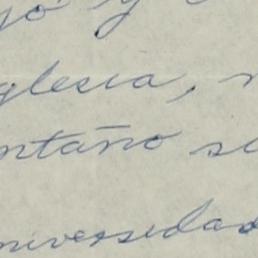 yo y
glesia,
ntaño su
niversidad